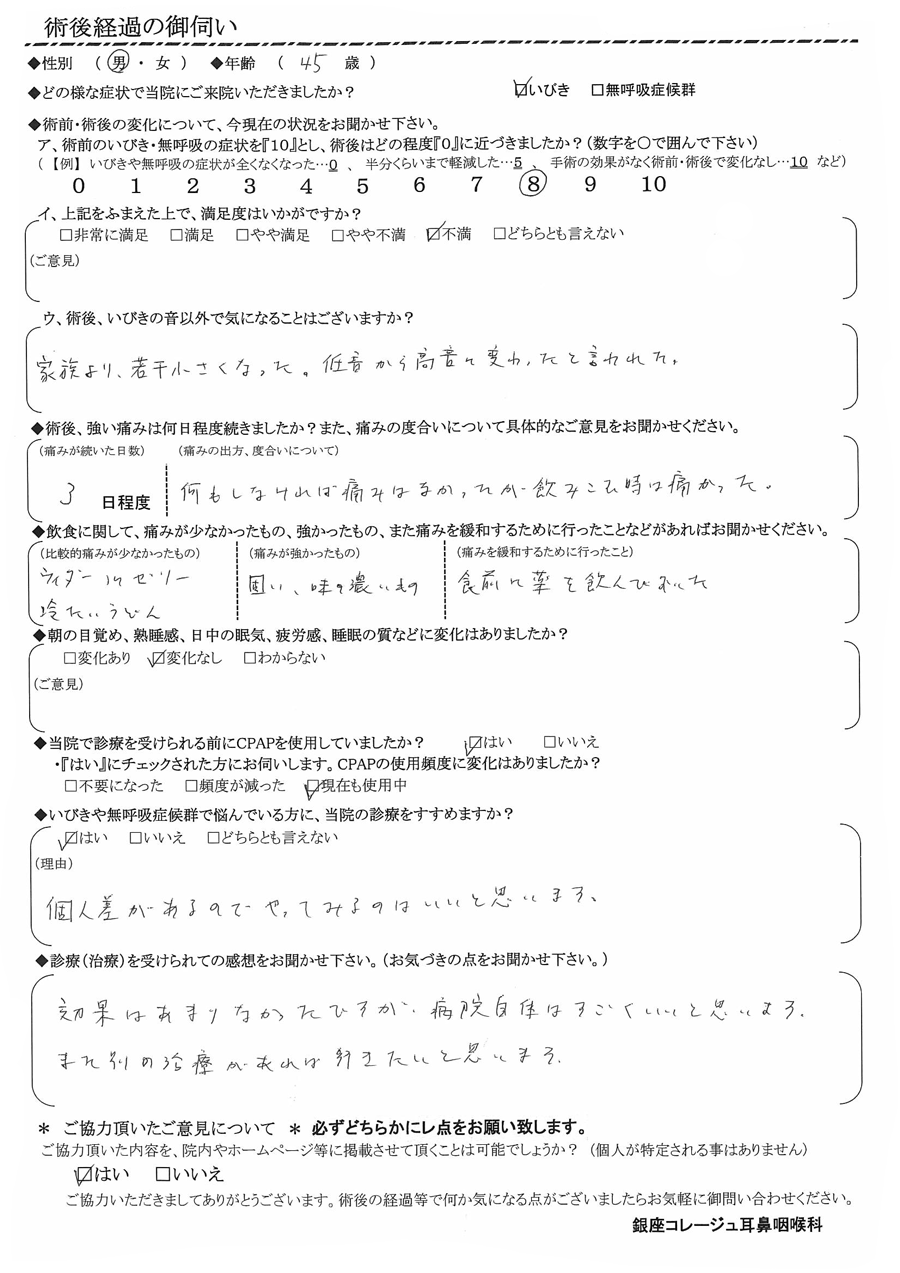 術後経過の御伺い
◆性別　（ 男 ・ 女 ）　◆年齢　（　45　歳　）
◆どの様な症状で当院にご来院いただきましたか？　☑いびき　□無呼吸症候群
◆術前・術後の変化について、今現在の状況をお聞かせ下さい。
ア、術前のいびき・無呼吸の症状を『10』とし、術後はどの程度『0』に近づきましたか？（数字を○で囲んで下さい）
（【例】 いびきや無呼吸の症状が全くなくなった…0　、　半分くらいまで軽減した…5　、　手術の効果がなく術前・術後で変化なし…10　など）
0　1　2　3　4　5　6　7　⑧　9　10
イ、上記をふまえた上で、満足度はいかがですか？
□非常に満足　□満足　□やや満足　□やや不満　☑不満　□どちらとも言えない
（ご意見）
ウ、術後、いびきの音以外で気になることはございますか？
家族より、若干小さくなった。低音から高音に変わったと言われた。
◆術後、強い痛みは何日程度続きましたか？また、痛みの度合いについて具体的なご意見をお聞かせください。
（痛みが続いた日数）　（痛みの出方、度合いについて）
3　日程度　何もしなければ痛みはなかったが飲みこむ時は痛かった。
◆飲食に関して、痛みが少なかったもの、強かったもの、また痛みを緩和するために行ったことなどがあればお聞かせください。
（比較的痛みが少なかったもの）　（痛みが強かったもの）　（痛みを緩和するために行ったこと）
ウイダーinゼリー　固い、味の濃いもの　食前に薬を飲んでおいた
冷たいうどん
◆朝の目覚め、熟睡感、日中の眠気、疲労感、睡眠の質などに変化はありましたか？
□変化あり　☑変化なし　□わからない
（ご意見）
◆当院で診療を受けられる前にCPAPを使用していましたか？　☑はい　□いいえ
・『はい』にチェックされた方にお伺いします。CPAPの使用頻度に変化はありましたか？
□不要になった　□頻度が減った　☑現在も使用中
◆いびきや無呼吸症候群で悩んでいる方に、当院の診療をすすめますか？
☑はい　□いいえ　□どちらとも言えない
（理由）
個人差があるのでやってみるのはいいと思います。
◆診療（治療）を受けられての感想をお聞かせ下さい。（お気づきの点をお聞かせ下さい。）
効果はあまりなかったですが、病院自体はすごくいいと思います。
また別の治療があれば行きたいと思います。
＊　ご協力頂いたご意見について　＊　必ずどちらかにレ点をお願い致します。
ご協力頂いた内容を、院内やホームページ等に掲載させて頂くことは可能でしょうか？　（個人が特定される事はありません）
☑はい　□いいえ
ご協力いただきましてありがとうございます。術後の経過等で何か気になる点がございましたらお気軽に御問い合わせください。
銀座コレージュ耳鼻咽喉科